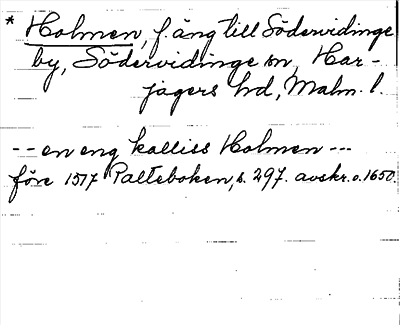 * Holmen, f. äng till Södervidinge
by, Södervidinge sn, Har-
jagers hd, Malm. l.
-- en eng kalliss Holmen ---
före 1517 Palteboken, s. 297. avskr. o. 1650.